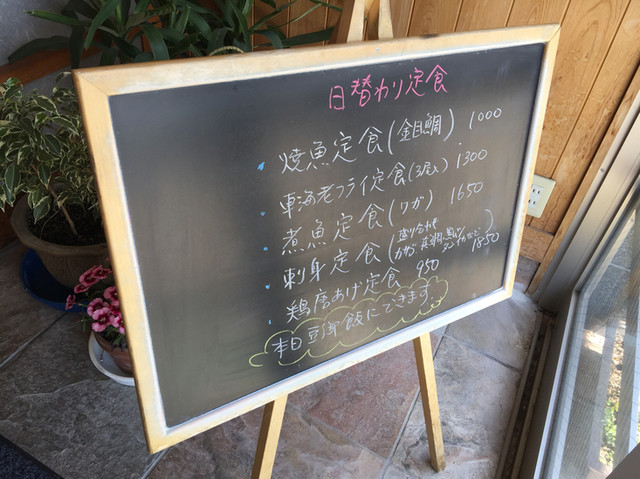 日替わり定食
・焼魚定食(金目鯛) 1000
車海老フライ定食(3尾入) 1300
・煮魚定食(ワガ) 1650
・刺身定食(盛り合わせ) 1850
・鶏唐あげ定食 950
本日豆御飯にできます。